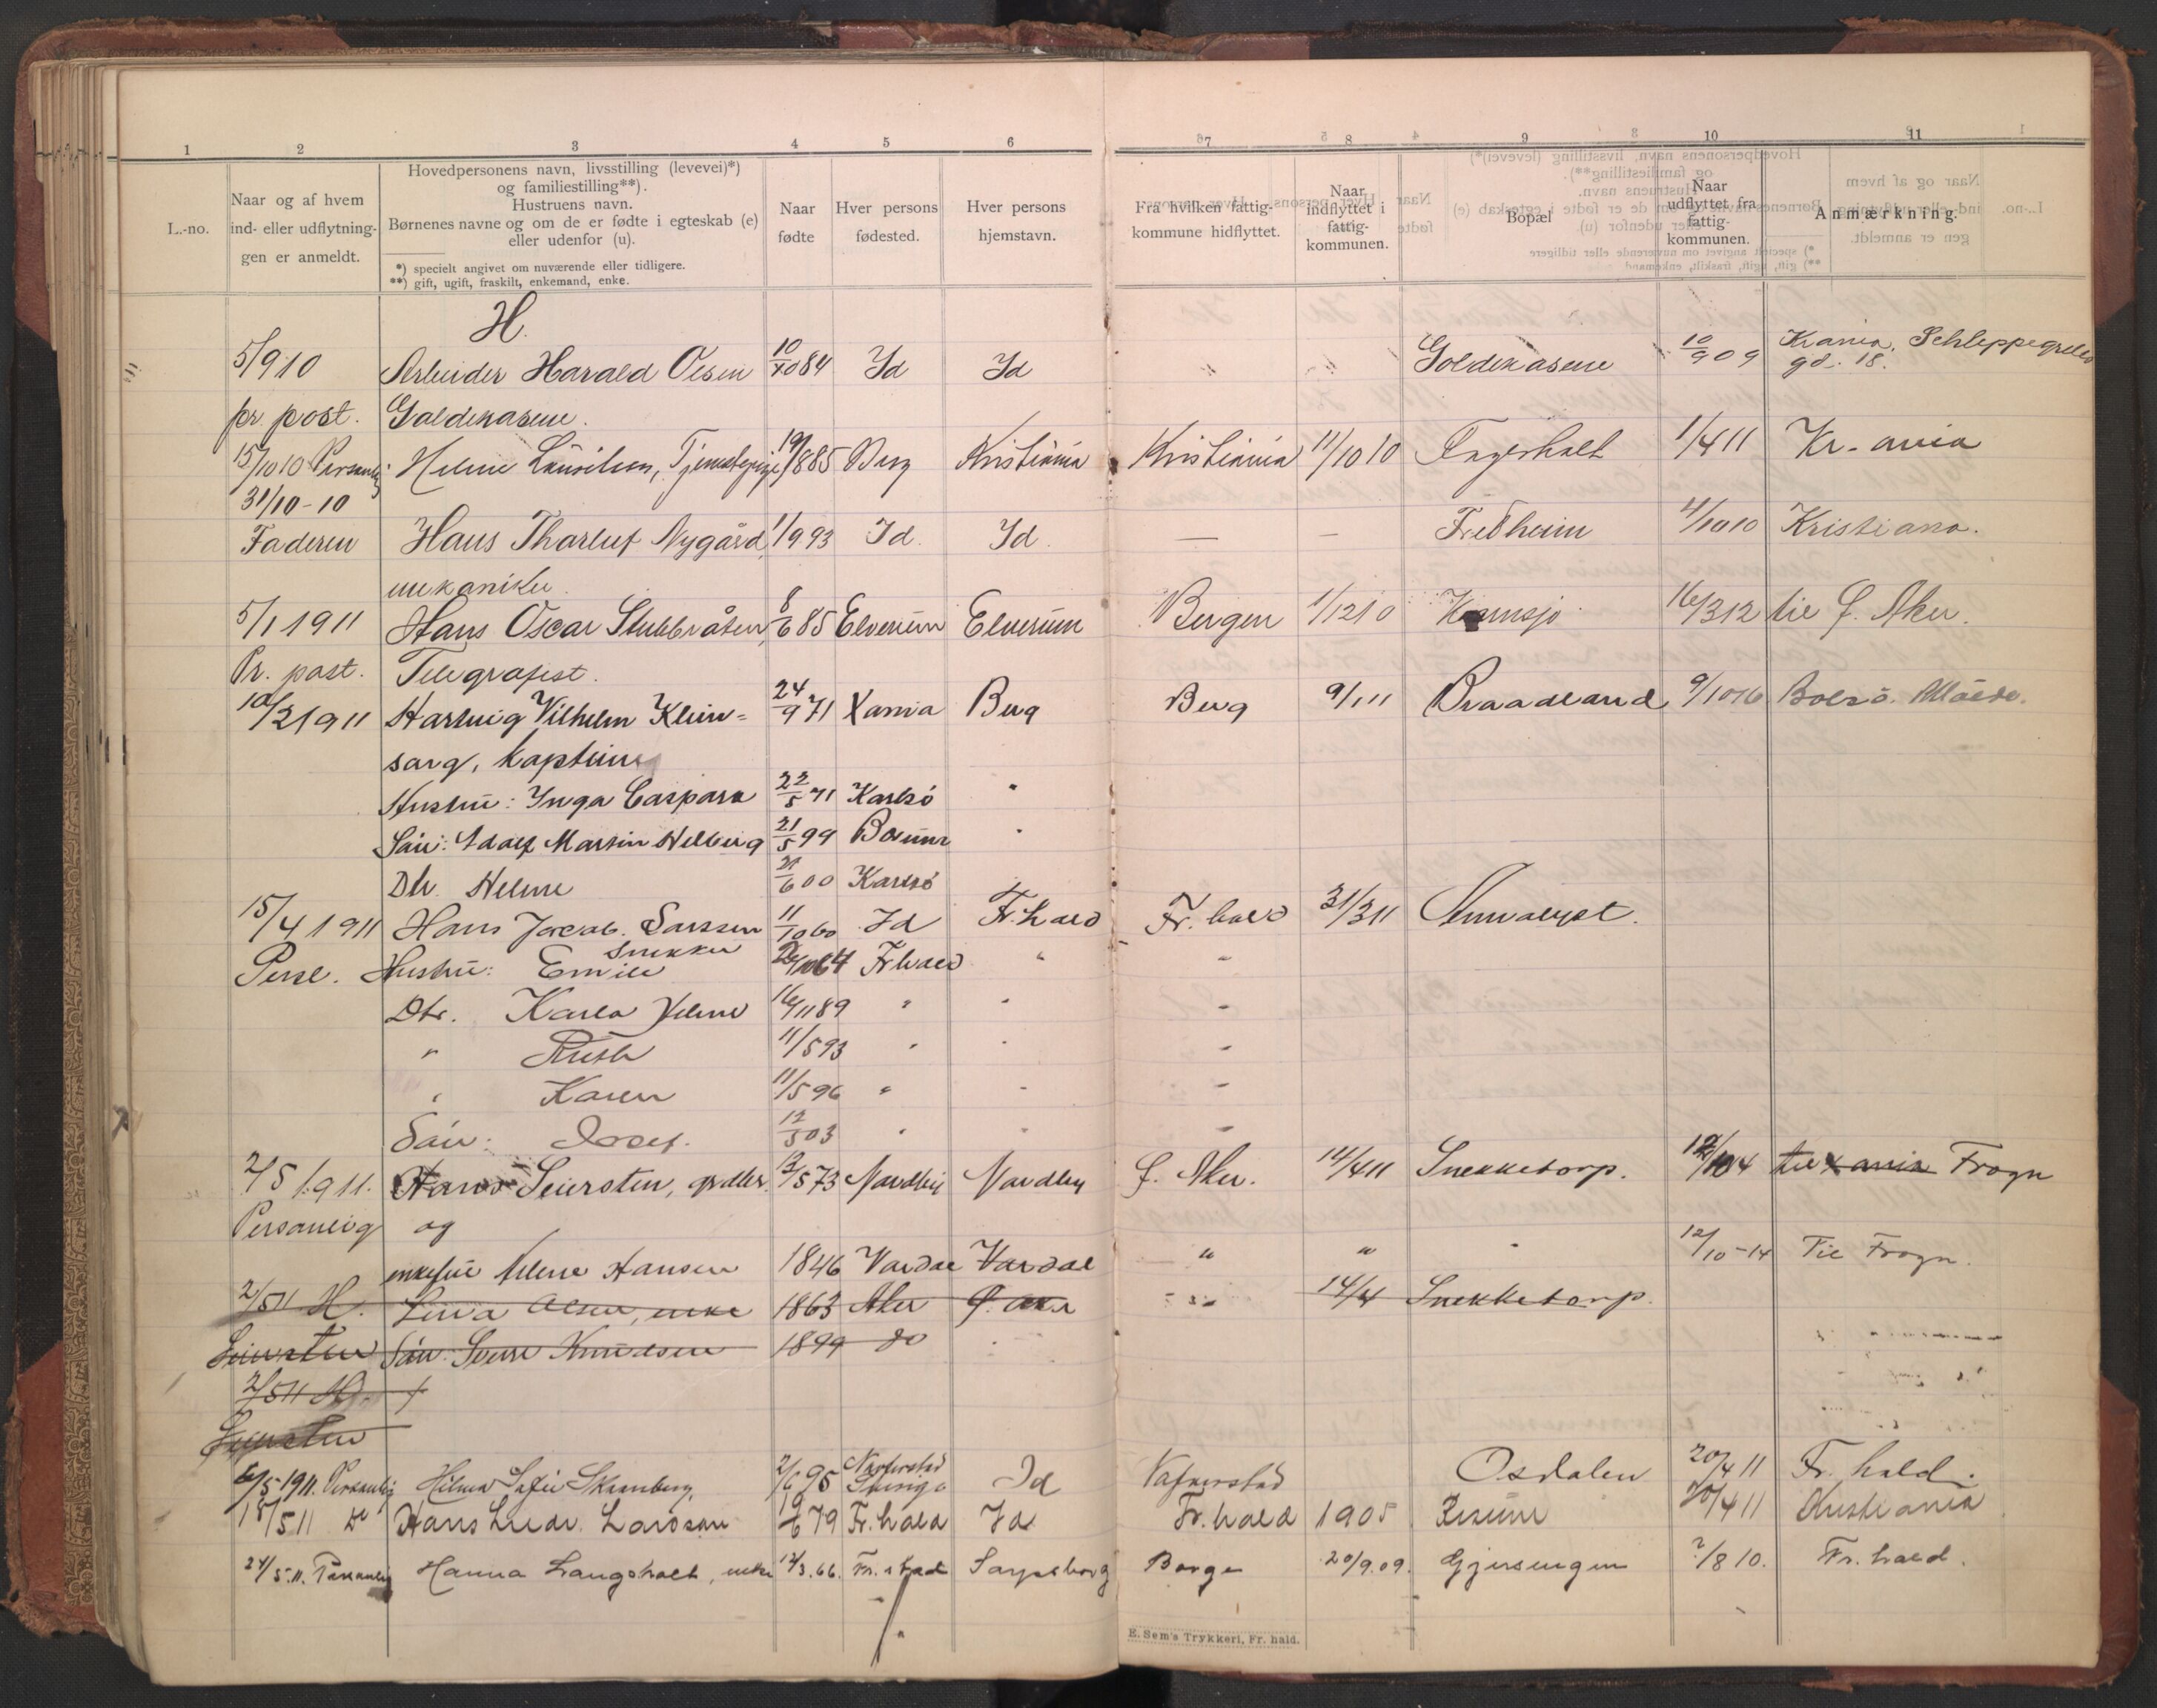 1 2 3 4 5 6 7 8 9 10 11
L.-no.
Naar og af hvem ind- eller udflytningen er anmeldt.
Hovedpersonens navn, livsstilling (levevei)*) og familiestilling**).
Hustruens navn.
Børnenes navne og om de er fødte i egteskab (e) eller udenfor (u).
*) specielt angivet om nuværende eller tidligere.
**) gift, ugift, fraskilt, enkemand, enke.
Naar fødte
Hver persons fødested.
Hver persons hjemstavn.
Fra hvilken fattigkommune hidflyttet.
Naar indflyttet i fattigkommunen.
Bopæl
Naar udflyttet fra fattigkommunen.
Anmærkning.
H.
5/9 10 Arbeider Harald Olsen 10/10 84 Id Id " " Goldekasene 10/9 09 Krania, Schleppegrells gd. 18.
pr. post. Goldekasene.
15/10 10 Personlig Helene Lauritsen, Tjenestepige 19/1 885 Berg Kristiania Kristiania 11/10 10 Fagerholt 1/4 11 Kr-ania
31/10-10
Faderen Hans Tharluf Nygård, 1/9 93 Id. Id. — — Fredheim 4/10 10 Kristiana.
mekaniker.
5/1 1911 Hans Oscar Stubbråten, 8/6 85 Elverum Elverum Bergen 1/12 10 Kornsjø 16/3 12 til Ø. Aker.
Pr. post. Telegrafist.
10/2 1911 Hartvig Vilhelm Klein= 24/9 71 Xania Berg Berg 9/1 11 Braadland 9/10 16 Bolsö. Molde.
sarg, kaptein
Hustru: Inga Caspara 22/5 71 Karlsö "
Sön: Adolf Martin Helberg 21/5 99 Boemr "
Dtr. Helene 21/6 00 Karlsö
15/4 1911 Hans Jacob Larssen 11/10 60 Id Fr.hald Fr. hald 31/3 11
Snekker
Persl. Hustru: Emilie 26/10 64 Frhald " "
Dtr. Karla Helene 16/11 89 " " "
" Ruth 11/5 93 " " "
" Karen 11/5 96 " " "
Sön: Josef. 12/5 03 " " "
2/5 1911. Hans Seiersten, grdbr. 12/5 73 Nordby Nordby Ø. Aker. 14/4 11 Snekketorp. 12/10 14 til xania Frogn
Personlig og
enkefru Helene Hansen 1846 Vardal Vardal " " " 12/10-14 Til Frogn.
2/5 11 H. Lina Olsen, enke 1863 Aker Ø. Aker " 14/4 Snekketorp.
Seiersten Sön: Sverre Knudsen 1899 do
2/5 11 H.
Seiersten
6/5-1911. Personlig Hilma Sofie Skramberg, 2/6 95 Naverstad Id Naverstad Osdalen 20/4 11 Fr. hald.
18/5 11 Do Hans Ludv. Larssen 19/6 79 Fr. hald Id Fr. hald 1905 20/4 11 Kristiania
24/5.11. Personlig Hanna Langsholt, enke 12/3.66. Fr.stad Sarpsborg Borge 20/9.09. Gjersengen 2/8 10. Fr. hald.
E. Sem's Trykkeri, Fr. hald.